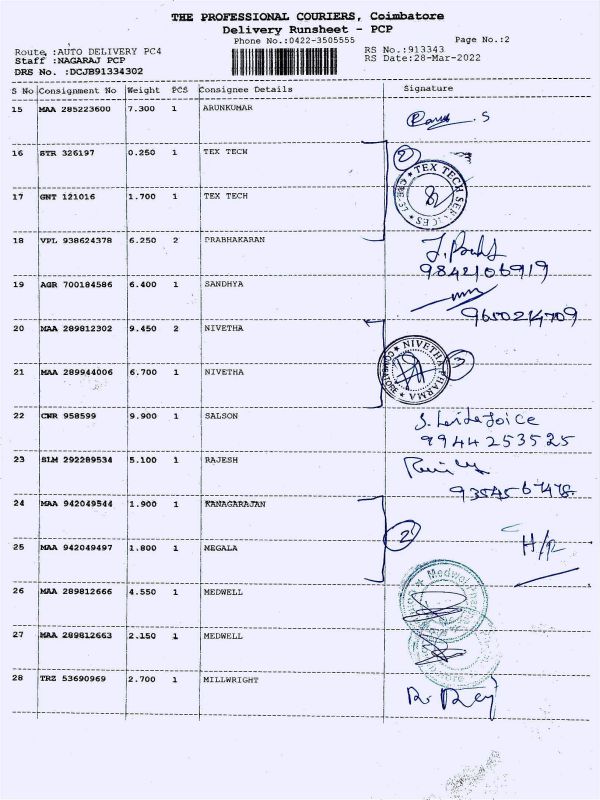 THE PROFESSIONAL COURIERS, Coimbatore
Delivery Runsheet - PCP
Phone No.:0422-3505555 Page No.:2
Route :AUTO DELIVERY PC4 RS No.:913343
Staff :NAGARAJ PCP RS Date:28-Mar-2022
DRS No. :DCJB91334302
S No Consignment No Weight PCS Consignee Details Signature
15 MAA 285223600 7.300 1 ARUNKUMAR
16 STR 326197 0.250 1 TEX TECH
2
TEX TECH SERVICES
17 GNT 121016 1.700 1 TEX TECH
18 VPL 938624378 6.250 2 PRABHAKARAN
9842106919
19 AGR 700184586 6.400 1 SANDHYA
9650214709
20 MAA 289812302 9.450 2 NIVETHA
NIVETHA PHARMA COIMBATORE
3
21 MAA 289944006 6.700 1 NIVETHA
22 CNR 958599 9.900 1 SALSON
9944253525
23 SLM 292289534 5.100 1 RAJESH
24 MAA 942049544 1.900 1 KANAGARAJAN
2
H/R
25 MAA 942049497 1.800 1 MEGALA
26 MAA 289812666 4.550 1 MEDWELL
27 MAA 289812663 2.150 1 MEDWELL
28 TRZ 53690969 2.700 1 MILLWRIGHT